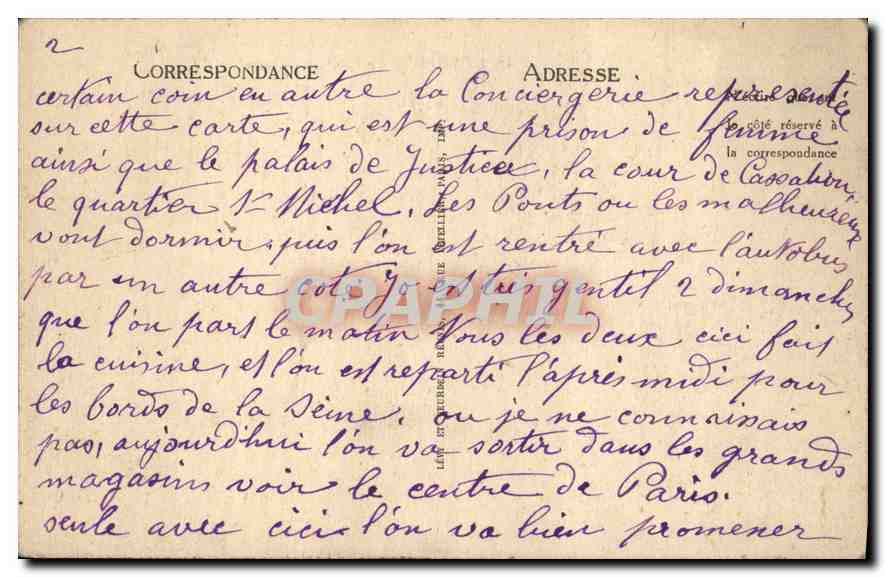 2
CORRESPONDANCE
ADRESSE
certain coin en autre la Conciergerie representée
sur cette carte, qui est une prison de femme
le côté réservé à
la correspondance
ainsi que le palais de Justice, la cour de Cassation,
le quartier St Michel, Les Ponts ou les malheureux
vont dormir, puis l'on est rentré avec l'autobus
par un autre coté Jo est tres gentil 2 dimanches
que l'on part le matin tous les deux cici fait
la cuisine, et l'on est reparti l'après midi pour
les bords de la Seine, ou je ne connaissais
pas, aujourd'hui l'on va sortir dans les grands
magasins voir le centre de Paris.
seule avec cici l'on va bien promener
LÉVY ET NEURDEIN RÉUNIS, 44, RUE LETELLIER, PARIS, IMP.
CPAPHIL